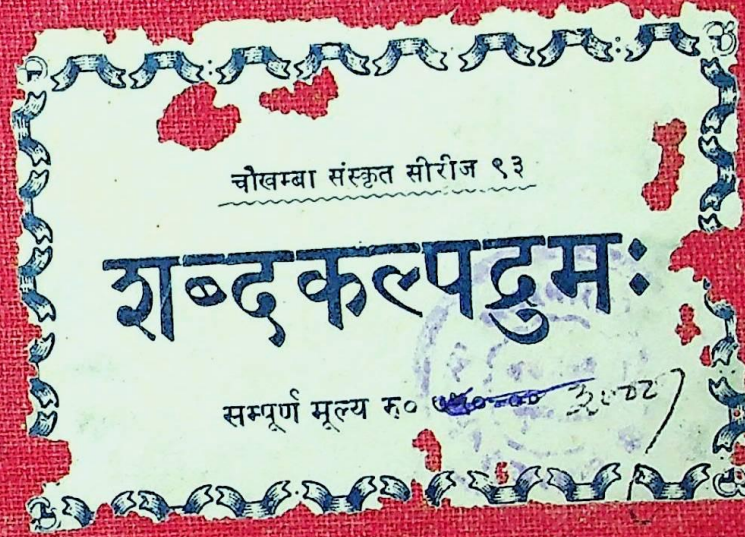 चौखम्बा संस्कृत सीरीज ९३
शब्दकल्पद्रुमः
सम्पूर्ण मूल्य रु०